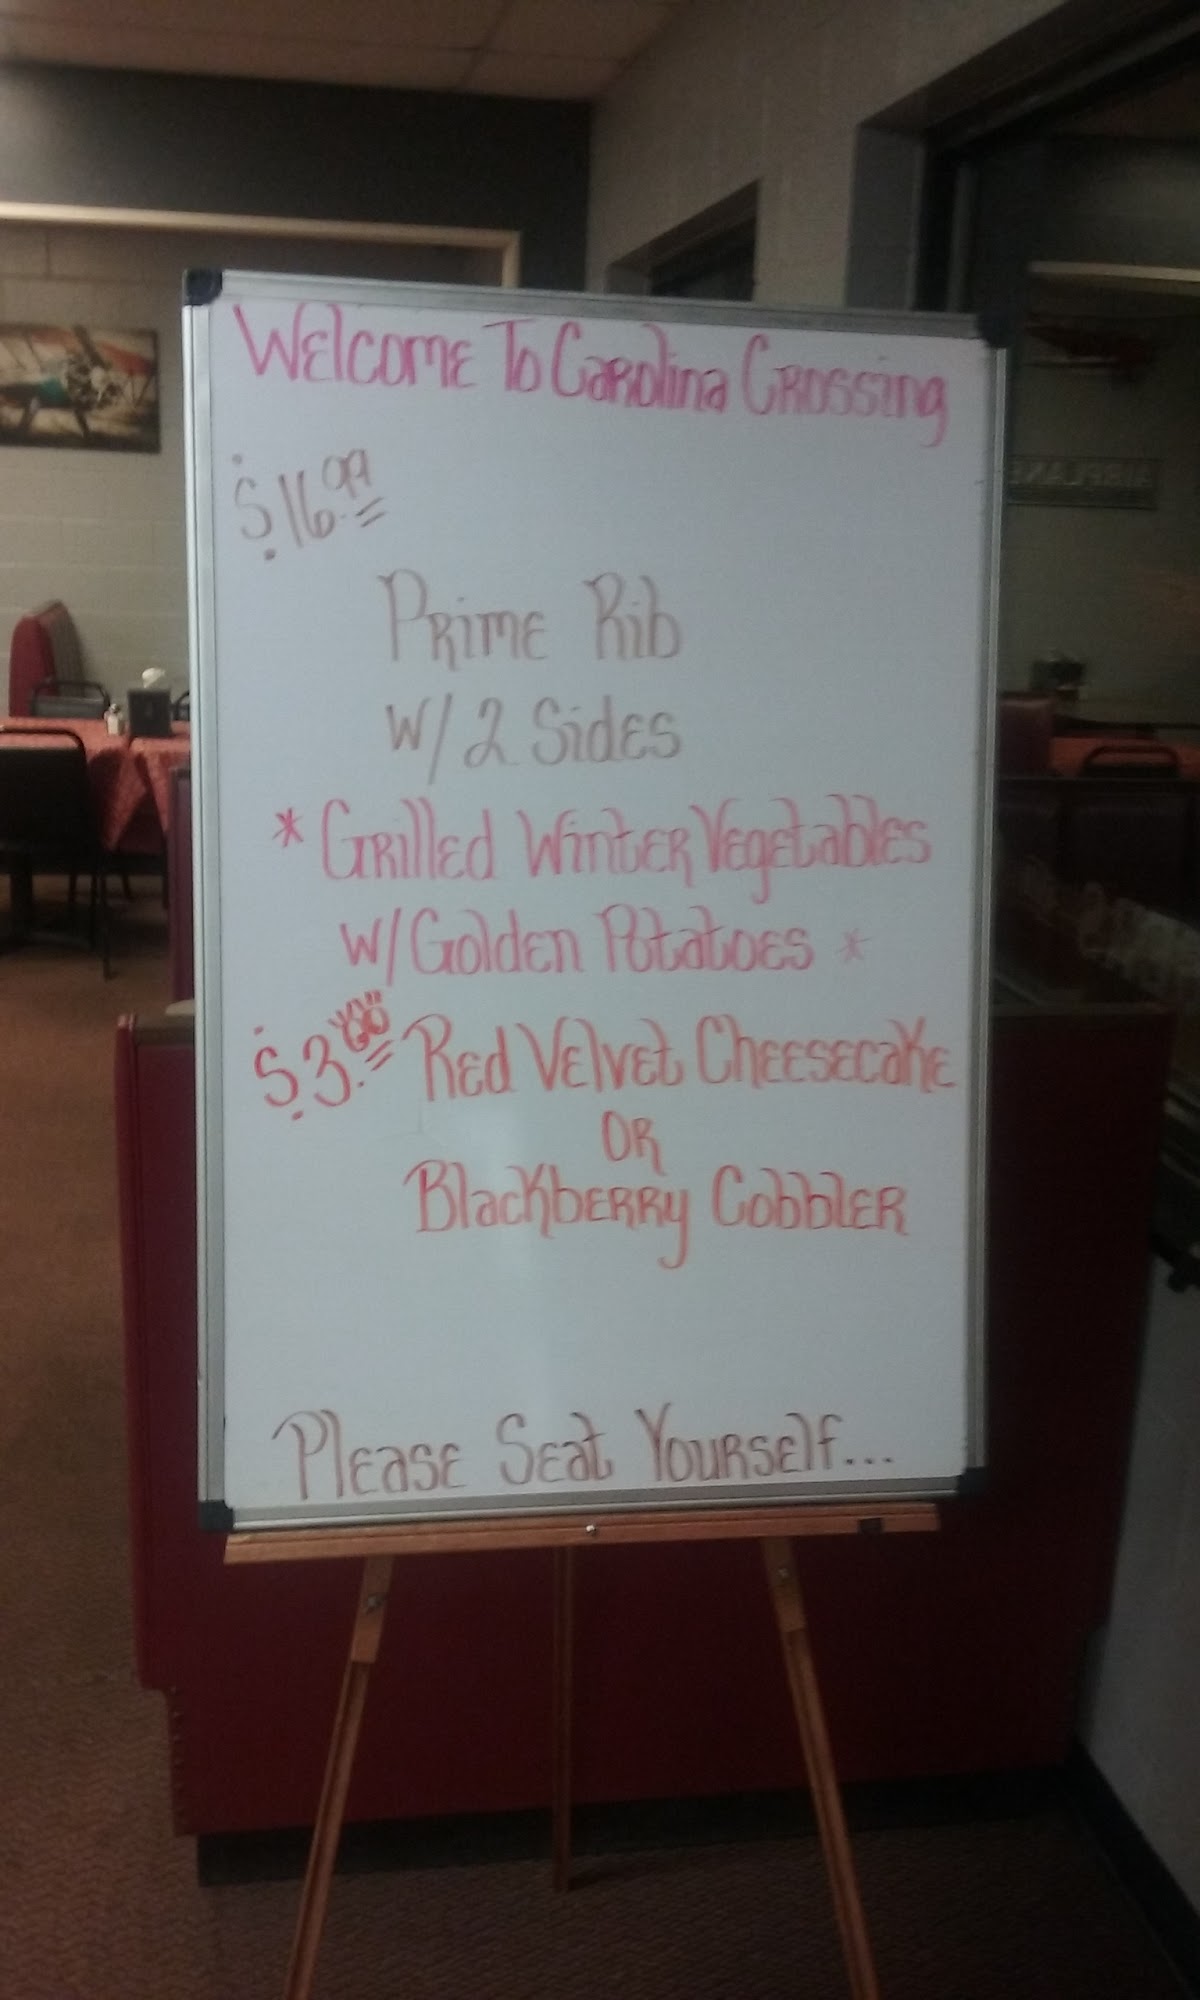 Welcome To Carolina Crossing
$16.99
Prime Rib
w/ 2 Sides
* Grilled Winter Vegetables
w/ Golden Potatoes *
$3.00 Red Velvet Cheesecake
OR
Blackberry Cobbler
Please Seat Yourself...